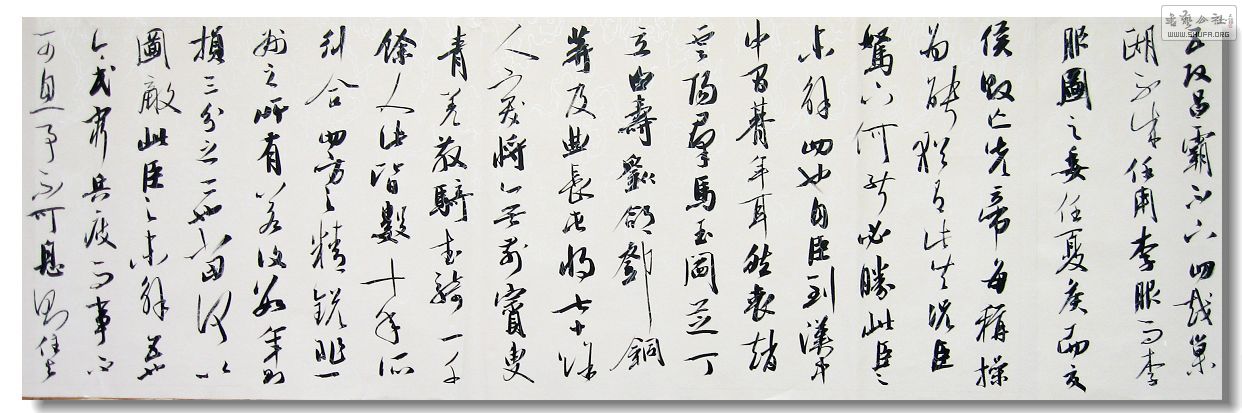 五攻昌霸不下四越巢
湖不成任用李服而李
服圖之委任夏侯而夏
侯敗亡先帝每稱操
為能猶有此失況臣
駑下何能必勝此臣之
未解四也自臣到漢中
中間朞年耳然喪趙
雲陽羣馬玉閻芝丁
立白壽劉郃鄧銅
等及曲長屯將七十餘
人突將無前賨叟
青羌散騎武騎一千
餘人此皆數十年所
糾合四方之精銳非一
州之所有若復數年則
損三分之二也當何以
圖敵此臣之未解五也
今民窮兵疲而事不
可息事不可息則住與
書藝公社
WWW.SHUFA.ORG